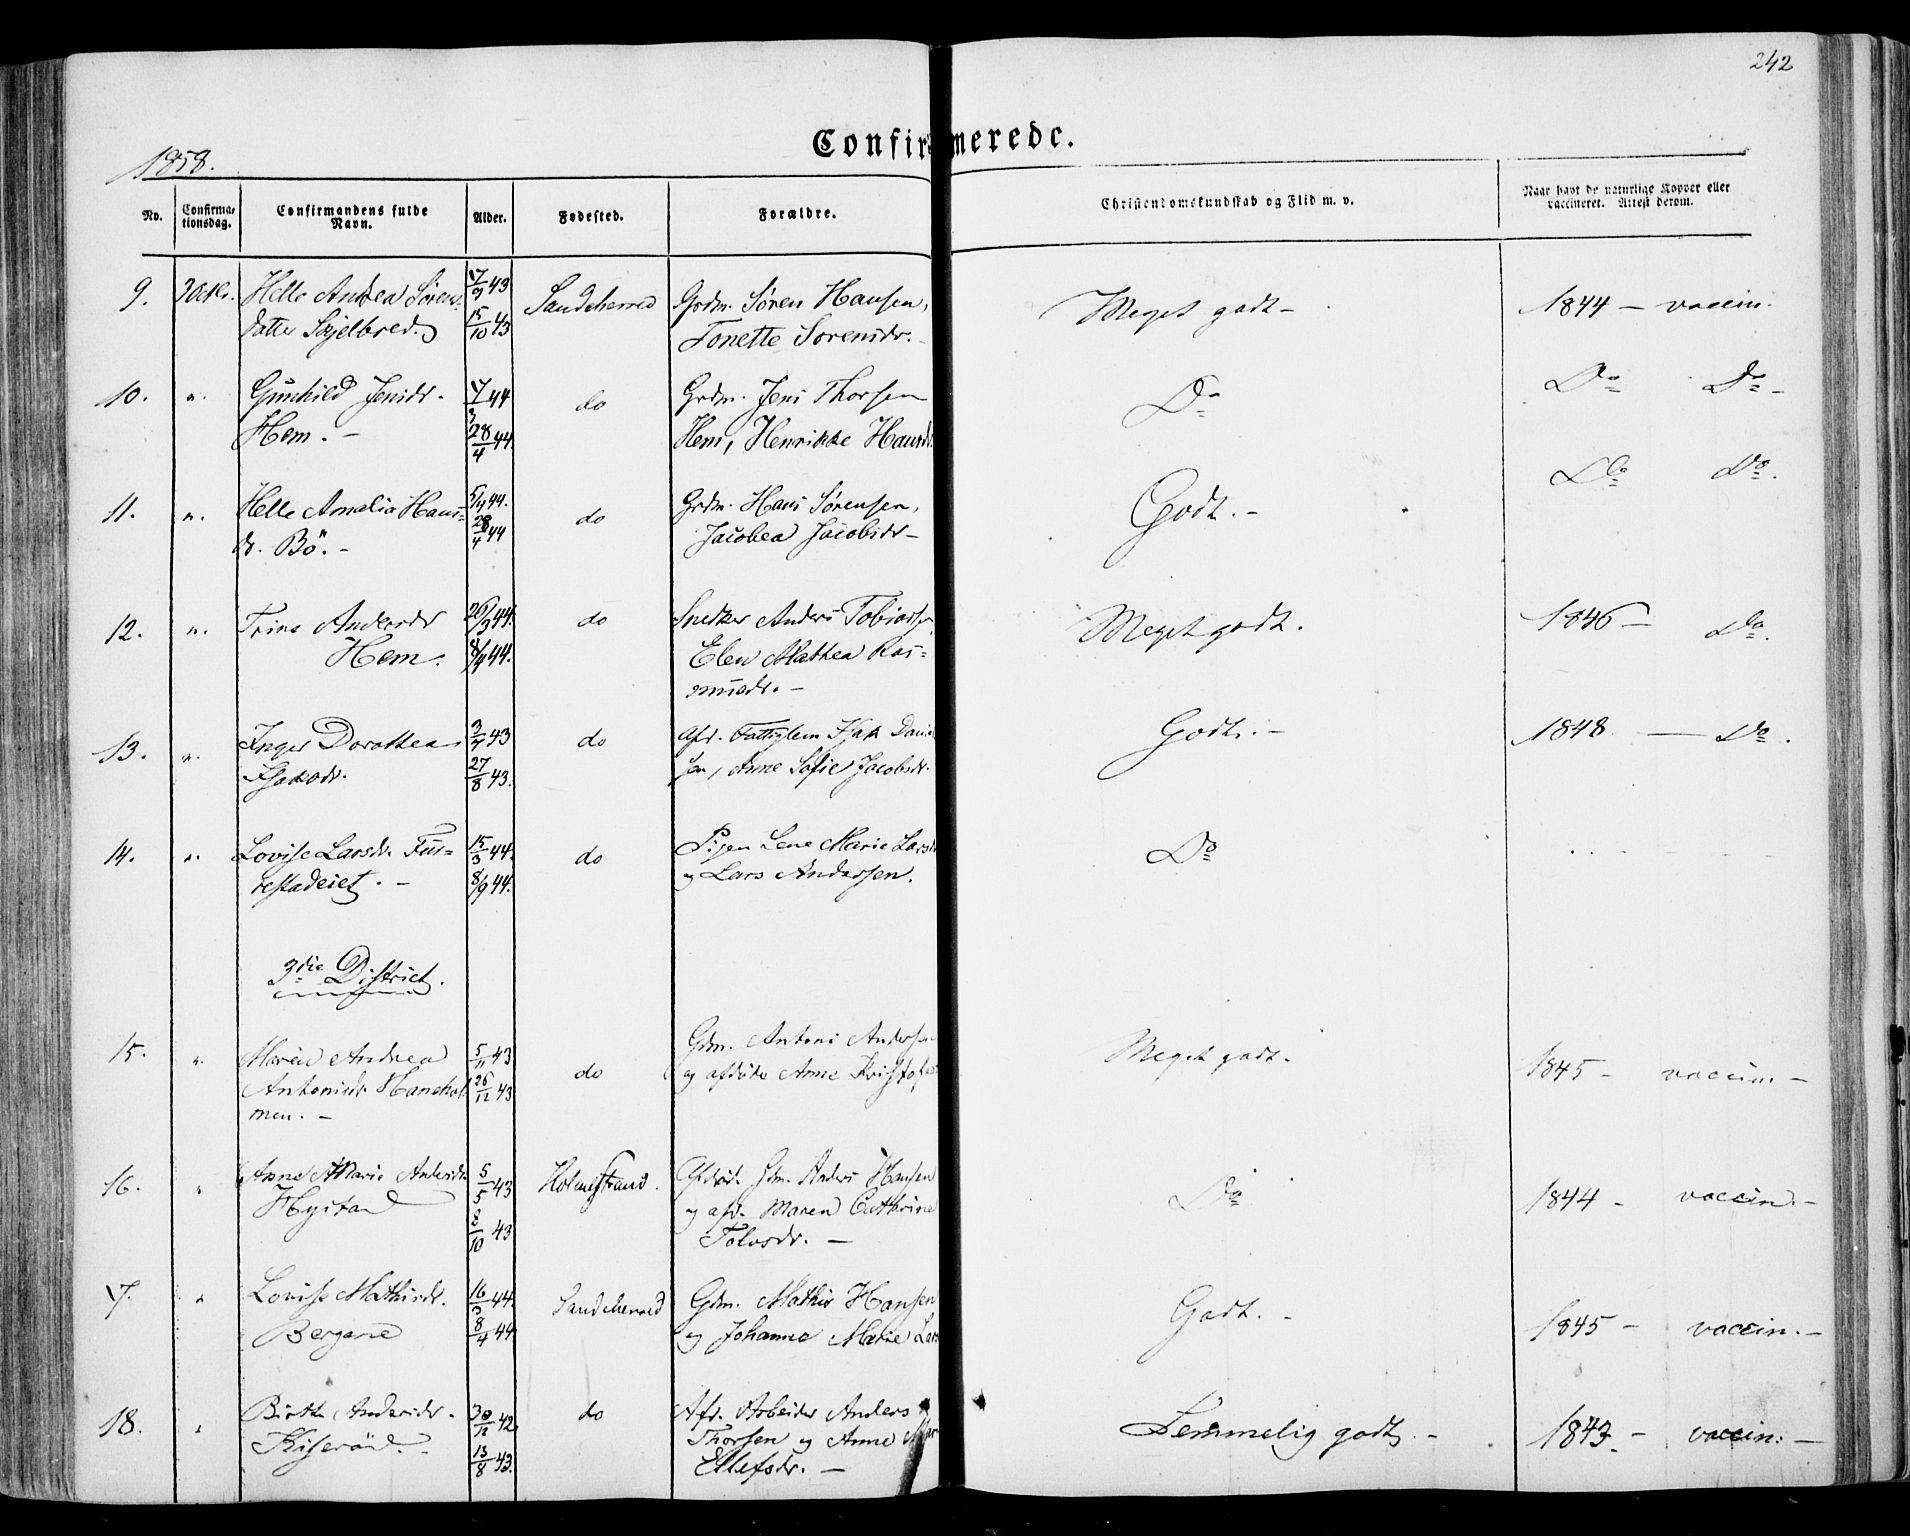 242
Confirmerede.
1858.
No. Confirma-tionsdag. Confirmandens fulde Navn. Alder. Fødested. Forældre. Christendomskundskab og Flid m. v. Naar havt de naturlige Kopper eller vaccineret. Attest derom.
9. 3 Octbr. Helle Andrea Sørens- 17/9 43 Sandeherred Grdm. Søren Hansen, Meget godt - 1844 - vaccin.
datter Skjelbred. 15/10 43 Tonette Sørensdr. -
10. ". Gunhild Jensdr. 17/3 44 do Grdm. Jens Thorsen Do Do Do -
Hem. - 28/4 44 Hem, Henrikke Hansdr.
11. ". Helle Amalia Hans- 5/4 44. do Grdm. Hans Sørensen, Godt. - Do Do.
dr. Bö. - 28/4 44 Jacobea Jacobsdr -
12. ". Trine Andersdr 26/3 44. do Snedker Anders Tobiassen, Meget godt. 1846 - Do.
Hem. 8/4 44. Elen Mathea Ras-
musdr. -
13. ". Inger Dorothea 3/7 43 do Afd. Fattiglem Isak Daniel- Godt. - 1848 - Do.
Isaksdr. 27/8 43. sen, Anne Sofie Jacobsdr.
14. ". Lovise Larsdr. Fur- 15/3 44. do Pigen Lene Marie Larsdr Do
restadeiet. - 8/9 44. og Lars Andersen.
3die District.
15. ". Maren Andrea 5/11 43 do Gdm. Antoni Andersen Meget godt. 1845 - vaccin. -
Antonisdr Hanehol- 26/12 43 og afdöde Anne Kristofers
men. -
16. " Anne Marie Andersdr. 5/5 43 Holmestrand. Afdød. Gdm. Anders Hansen Do 1844 - vaccin. -
Hystad 8/10 43 og afd. Maren Cathrine
Tolvsdr. -
17. " Lovise Mathisdr. 16/3 44. Sandeherred Gdm. Mathis Hansen Godt. - 1845 - vaccin. -
Bergane 8/4 44 og Johanne Marie Lars
18. " Birthe Andersdr. 30/12 42 do Afd. Arbeider Anders Temmelig godt. - 1843 - vaccin. -
Kiseröd. - 13/8 43. Thorsen og Anne
Ellefsdr. -